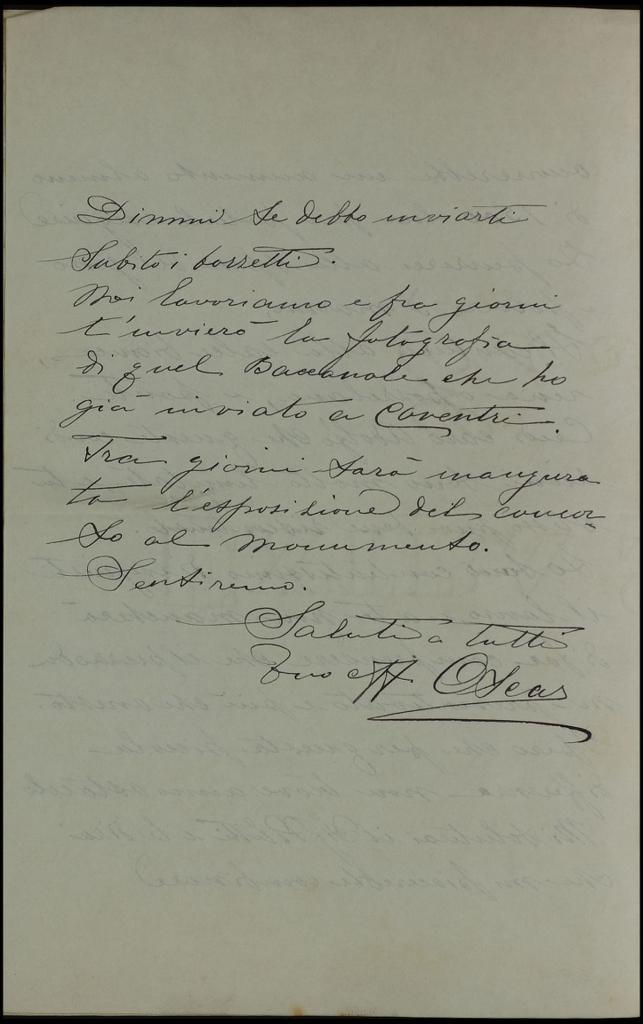 Dimmi se debbo inviarti
Subito i bozzetti.
Noi lavoriamo e fra giorni
t'invierò la fotografia
di quel Baccanale che ho
già inviato a Coventri.
Tra giorni sarà inaugura
ta l'esposizione del concor-
so al monumento.
Sentiremo.
Saluti a tutti
Tuo aff Oscar